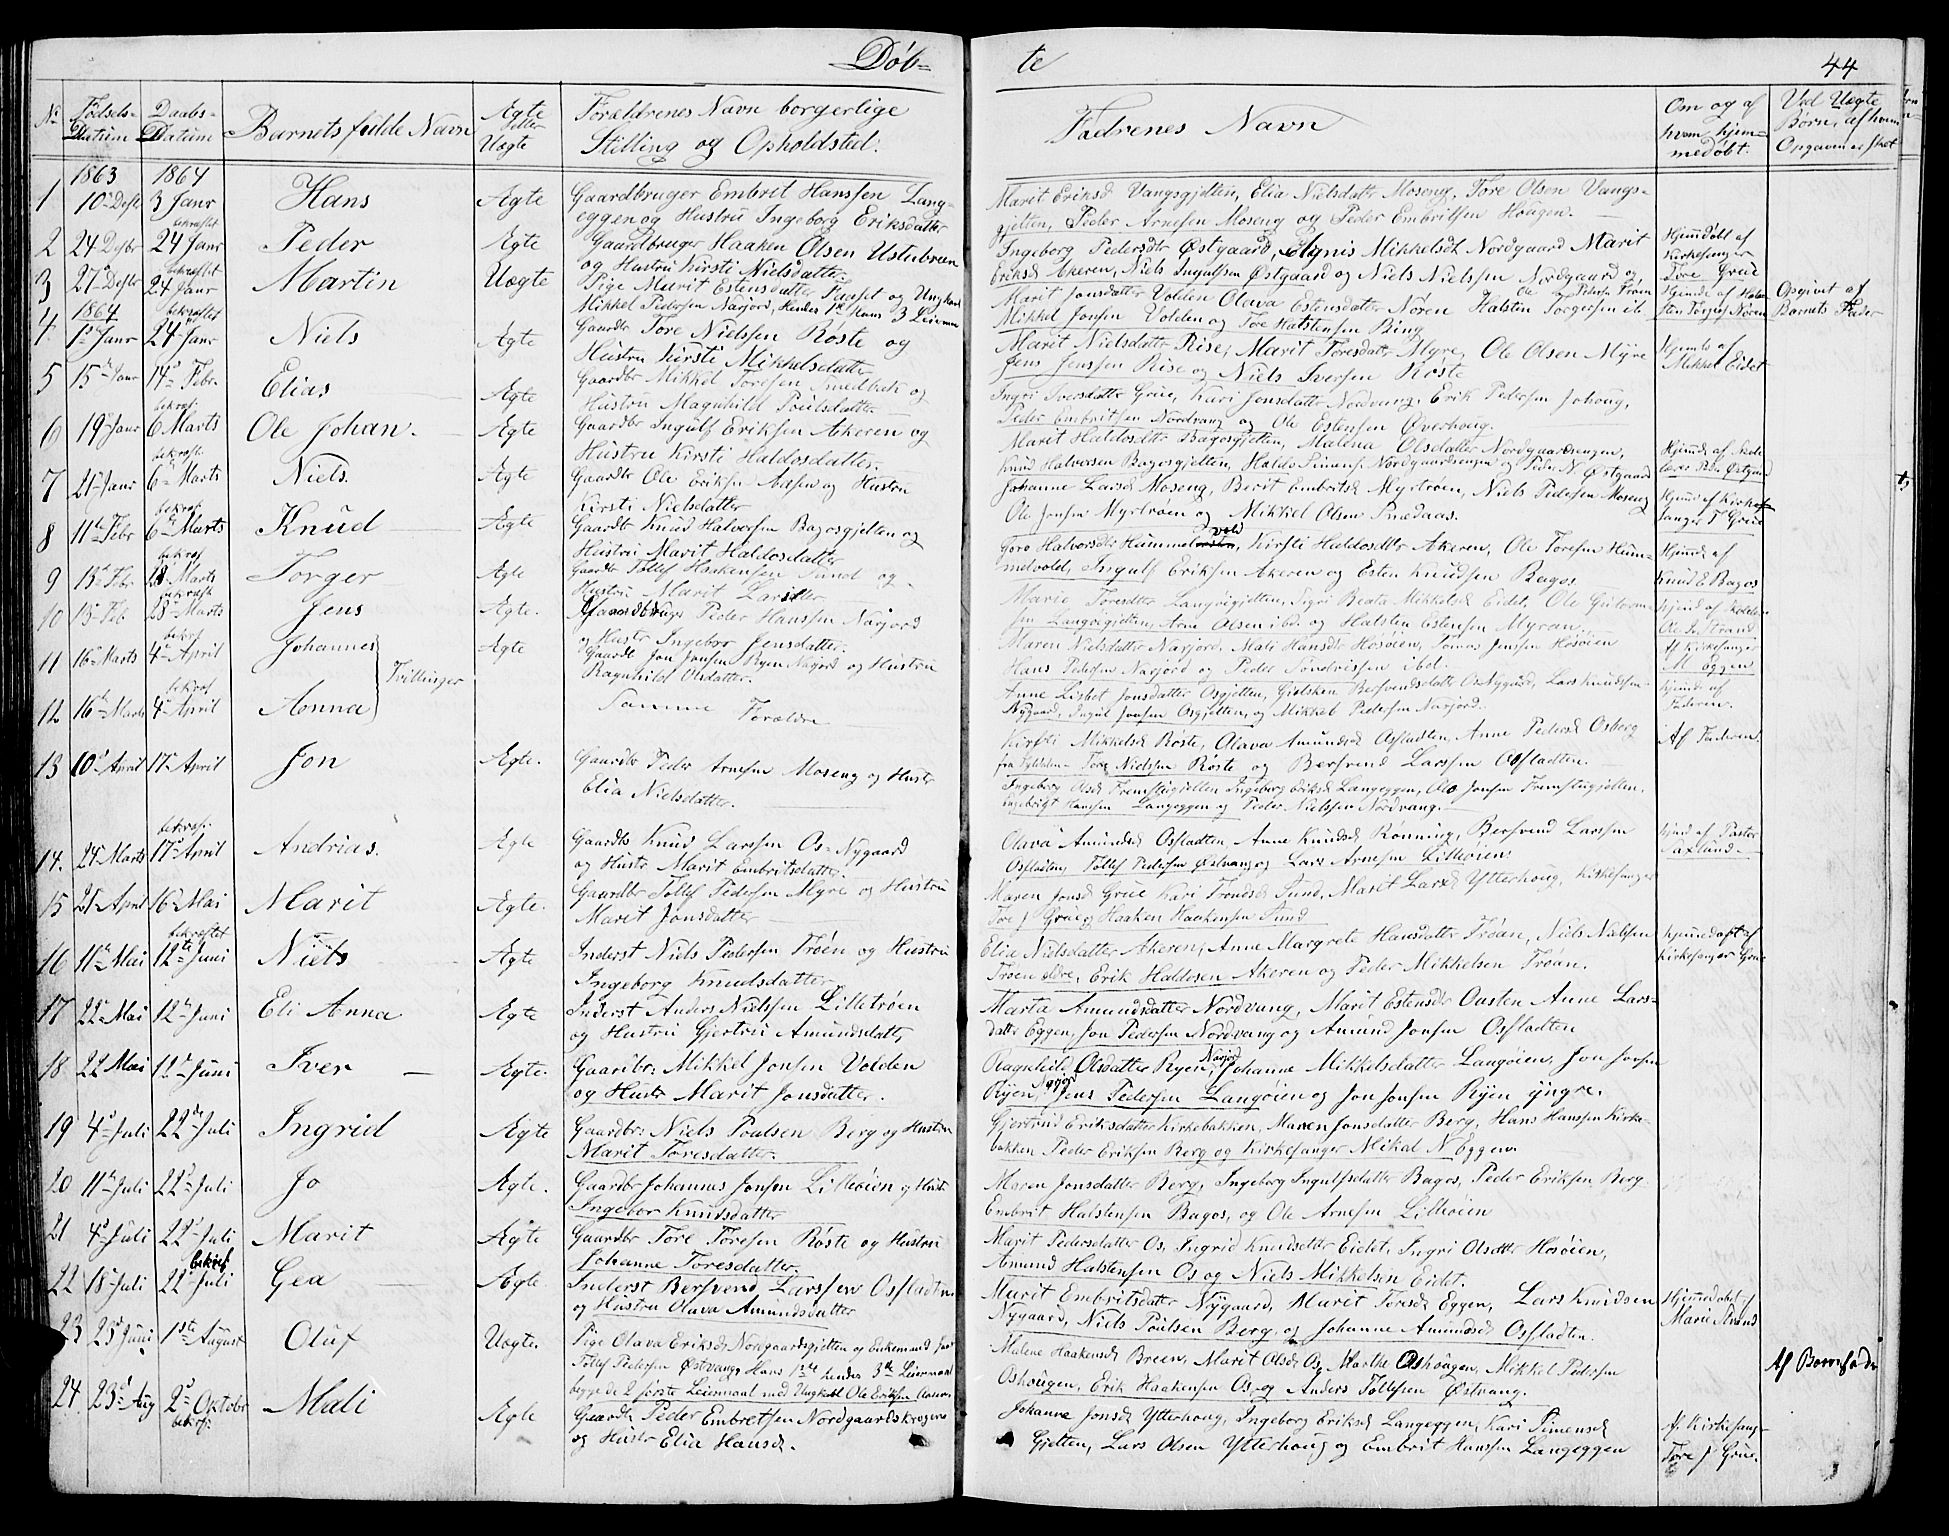 Døb=
te
44
No
Fødsels-
Datum
Daabs-
Datum
Barnets fulde Navn
Ægte
eller
Uægte
Forældrenes Navn borgerlige
Stilling og Opholdsted.
Fadrenes Navn
Om og af
hvem hjem-
medøbt.
Ved Uægte
Børn, af hvem
Opgaven er skeet
1863
1864
1
3 Janr
Hans
Ægte
Gaardbruger Embret Hanssen Lang-
eggen og Hustru Ingeborg Eriksdatter
Marit Eriksd Vangsgjelten, Elia Nielsdatter Moseng, Tore Olsen Vangs-
gjelten, Peder Arnesen Moseng og Peder Embritsen Hougen.
2
24 Desbr
bekræftet
24 Janr
Peder
Ægte
Gaardbruger Haaken Olsen Ustubroen
og Hustru Kirsti Nielsdatter.
Ingeborg Pedersdtr Østgaard, Agnis Mikkelsdt Nordgaard Marit
Eriksd Akeren, Niels Ingulfsen Østgaard og Niels Nielssen Nordgaard
Hjemdøbt af
Kirkesanger
Tore Grue
3
27 Desbr
bekræftet
24 Janr
Martin
Uægte
Pige Marit Estensdatter Fanset og Ungkarl
Mikkel Pedersen Narjord, Hendes 1ste Hans 3 Leiermaal
Marit Jonsdatter Volden Olava Estensdatter Nøren Halsten Torgersen
Mikkel Jonsen Volden og Tore Halstensen Bing
Opgivet af
Barnets Fader
1864
4
1ste Janr
bekræftet
24 Janr
Niels
Ægte
Gaardbr Tore Nielssen Røste og
Hustru Kirsti Mikkelsdatter
Marit Nielsdatter Rise, Marit Toresdatter Myre, Ole Olsen Myre
Jens Jenssen Rise og Niels Iversen Røste
Mikkel Eidet
5
15 Janr
14 Febr.
Elias
Ægte
Gaardbr Mikkel Toresen Smedbak og
Hustru Magnhild Poulsdatter
Ingri Iversdatter Grue, Kari Jonsdatter Nordvang, Erik Pedersen Johoug,
Peder Embritsen Nordvang og Ole Estensen Øverhoug.
6
19 Janr
bekræft.
6 Marts
Ole Johan.
Ægte
Gaardbr Ingulf Eriksen Akeren og
Hustru Kirsti Haldosdatter.
Marit Haldosdtr Bagosgjelten, Malena Olsdatter Nordgaardsengen,
Knud Halvorsen Bagosgjelten, Haldo Simens. Nordgaardsengen og Peder N Østgaard
7
21 Janr
bekræft.
6 Marts
Niels.
Ægte
Gaardbr Ole Eriksen Aasen og Hustru
Kirsti Nielsdatter
Johanne Larsd Moseng, Berit Embritsd Myrtrøen, Niels Pedersen Moseng
Ole Jonsen Myrtrøen og Mikkel Olsen Snedaas.
8
11te Febr
bekræf.
6 Marts
Knud
Ægte
Gaardbr Knud Halvorsen Bagosgjelten og
Hustru Marit Haldosdatter
Goro Halvorsdtr Hummelvold, Kirsti Haldosdtr Akeren, Ole Toresen Hum-
melvold, Ingulf Eriksen Akeren og Esten Knudsen Bagos
Hjemd af
Knud E Bagos
9
15 Febr
bekræf
28 Marts
Torger
Ægte
Gaardbr Tollef Haakensen Sund og
Hustru Marit Larsdtr
10
15 Feb
bekræft
28 Marts
Jens
Ægte.
Gaardbruger Peder Hanssen Narjord
og Hustr Ingebor Jensdatter.
Maren Nielsdatter Narjord, Mali Hansdtr Hosøien, Tomas Jenssen Hosøien
Hans Pedersen Narjord og Peder Simensen ibd.
Af Kirkesanger
M Eggen
11
16 Marts
bekræf
4 April
Johannes
Tvillinger
Ægte
Gaardbr Jon Jonsen Ryen Narjord og Hustru
Ragnhild Olsdatter.
Anne Lisbet Jonsdatter Osgjelten, Gjelsken Bersvendsdatter Os Nygaard, Lars Knudsen
Nygaard, Ingul Jonsen Osgjelten, og Mikkel Pedersen Narjord.
Hjemd af
Faderen.
12
16 Marts
bekræf
4 April
Anna
Samme Forældre
Kirsti Mikkelsd Røste, Olava Amundsd Osfladten, Anne Pedersd Osberg
Tore Nielssen Røste og Bersvend Larssen Osfladten.
Af Faderen
13
10 April
17 April
Jon
Ægte.
Gaardbr Peder Arnesen Moseng og Hustr
Elia Nielsdatter.
Ingeborg Olsd Fremstugjelten Ingeborg Eriksd Langeggen, Ole Jonsen Fremstugjelten,
Engebrigt Hansen Langeggen og Peder Nielssen Nordvang.
14.
24 Marts
bekræf.
17 April
Andrias.
Ægte
Gaardbr Knud Larssen Os-Nygaard
og Hustr Marit Embritsdatter.
Olava Amundsd Osfladten, Anne Knudsd Rønning, Bersvend Larssen
Osfladten, Tollef Pedersen Østvang og Lars Arnesen Lilleøien
Hjemd af Pastor
Saxlund.
15
21 April
16 Mai
Marit
Ægte.
Gaardbr Tollef Pedersen Myre og Hustru
Marit Jonsdatter
Maren Jonsd Grue Kari Trondsd Sund, Marit Larsd Ytterhoug, Kirkesanger
Tore J Grue og Haaken Haakensen Sund
16
11 Mai
bekræftet
12te Juni
Niels
Ægte
Inderst Niels Pedersen Trøen og Hustru
Ingeborg Knudsdatter
Elia Nielsdatter Akeren, Anne Margrete Hansdatter Trøan, Niels Nielsen
Trøen øvre, Erik Haldosen Akeren og Peder Mikkelsen Trøan.
Hjemmedøbt af
Kirkesanger Grue
17
22 Mai
12 Juni
Eli Anna
Ægte
Inderst Anders Nielssen Lilletrøen
og Hustru Gjertru Amundsdatter
Marta Amundsdatter Nordvang, Marit Estensdtr Ousten Anne Lars-
datter Eggen, Jon Pedersen Nordvang og Amund Jonsen Osfladten
18
22 Mai
12 Juni
Iver
Ægte.
Gaardbr: Mikkel Jonsen Volden
og Hustr Marit Jonsdatter.
Ragnhild Olsdatter Ryen, Narjord Johanne Mikkelsdatter Langøien, Jon Jonsen
Ryen, Jens Pedersen Langøien og Jon Jonsen Ryen yngre.
19
4 Juli
22de Juli
Ingrid
Ægte
Gaardbr: Niels Poulsen Berg og Hustru
Marit Toresdatter.
Gjertrud Eriksdatter Kirkebakken, Maren Jonsdatter Berg, Hans Hanssen Kirke-
bakken Peder Eriksen Berg og Kirkesanger Mikal N Eggen
20
11 Juli
22 Juli
Jo
Ægte.
Gaardbr Johannes Jonsen Lilleøien og Hustr
Ingebor Knudsdatter
Maren Jonsdatter Berg, Ingeborg Ingulfsdatter Bagos, Peder Eriksen Berg
Embrit Halstensen Bagos, og Ole Arnesen Lilleøien
21
4 Juli
22 Juli
Marit
Ægte
Gaardbr Tore Toresen Røste og Hustru
Johanne Toresdatter.
Marit Pedersdatter Os, Ingrid Knudsdatter Eidet, Ingri Olsdtr Hosøien,
Amund Halstensen Os og Niels Mikkelsen Eidet.
22
18 Juli
bekræf
22 Juli
Gea
Ægte
Inderst Bersvend Larssen Osfladten
og Hustru Olava Amundsdatter
Marit Embritsdatter Nygaard, Marit Toresd Eggen, Lars Knudsen
Nygaard, Niels Poulsen Berg og Johanne Amundsd Osfladten.
Hjemmedøbt af
Marie Strand
23
25 Juni
1ste August
Oluf
Uægte.
Pige Olava Eriksd Nordgaardsgjelten og Enkemand
Tollef Pedersen Østvang, Hans 1ste hendes 3de Leiermaal
begge de 2 første Leiermaal med Ungkarl Ole Eriksen Aasen
Malene Haakensd Breen, Marit Olsd Os, Marthe Oshougen, Mikkel Pedersen
Oshougen, Erik Haakensen Os, og Anders Tollefsen Østvang.
Af Barnefader
24
23 Aug
2 Oktobr
bekræf.
Mali
Ægte
Gaardbr Peder Embretsen Nordgaardskrogen
og Hustr Elia Hansd.
Johanne Jonsd Ytterhoug, Ingeborg Eriksd Langeggen, Kari Simensd
Gjelten, Lars Olsen Ytterhoug og Embrit Hanssen Langeggen
Af Kirkesang-
Tore J Grue.